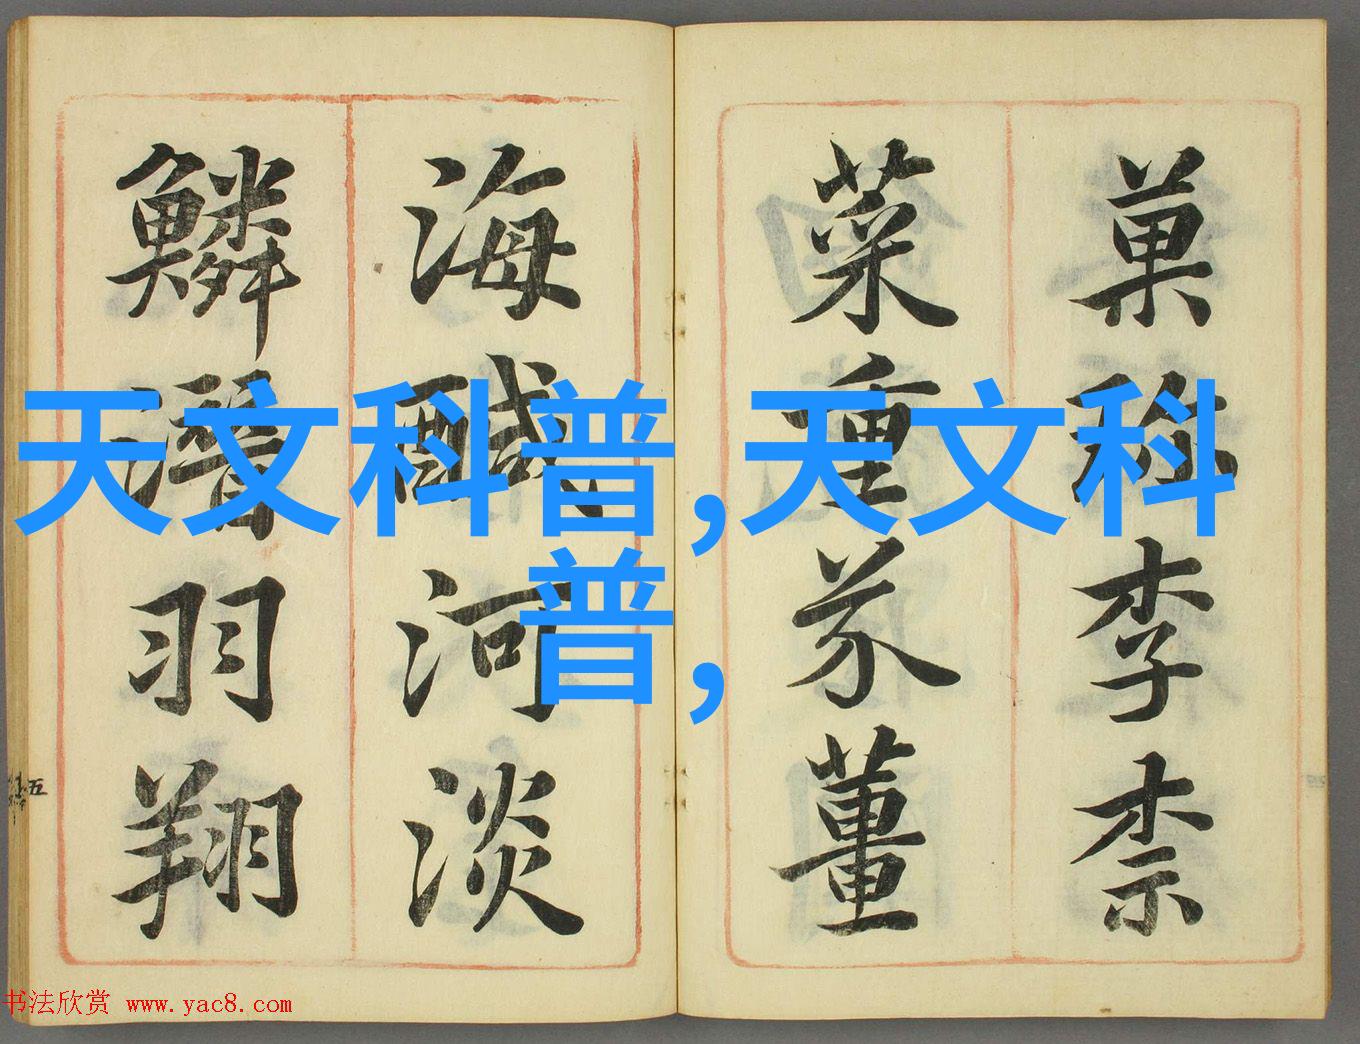 菓珎李柰
菜重芥薑
海鹹河淡
鱗潛羽翔
五
天文科普,天文科
普,
书法欣赏 www.yac8.com